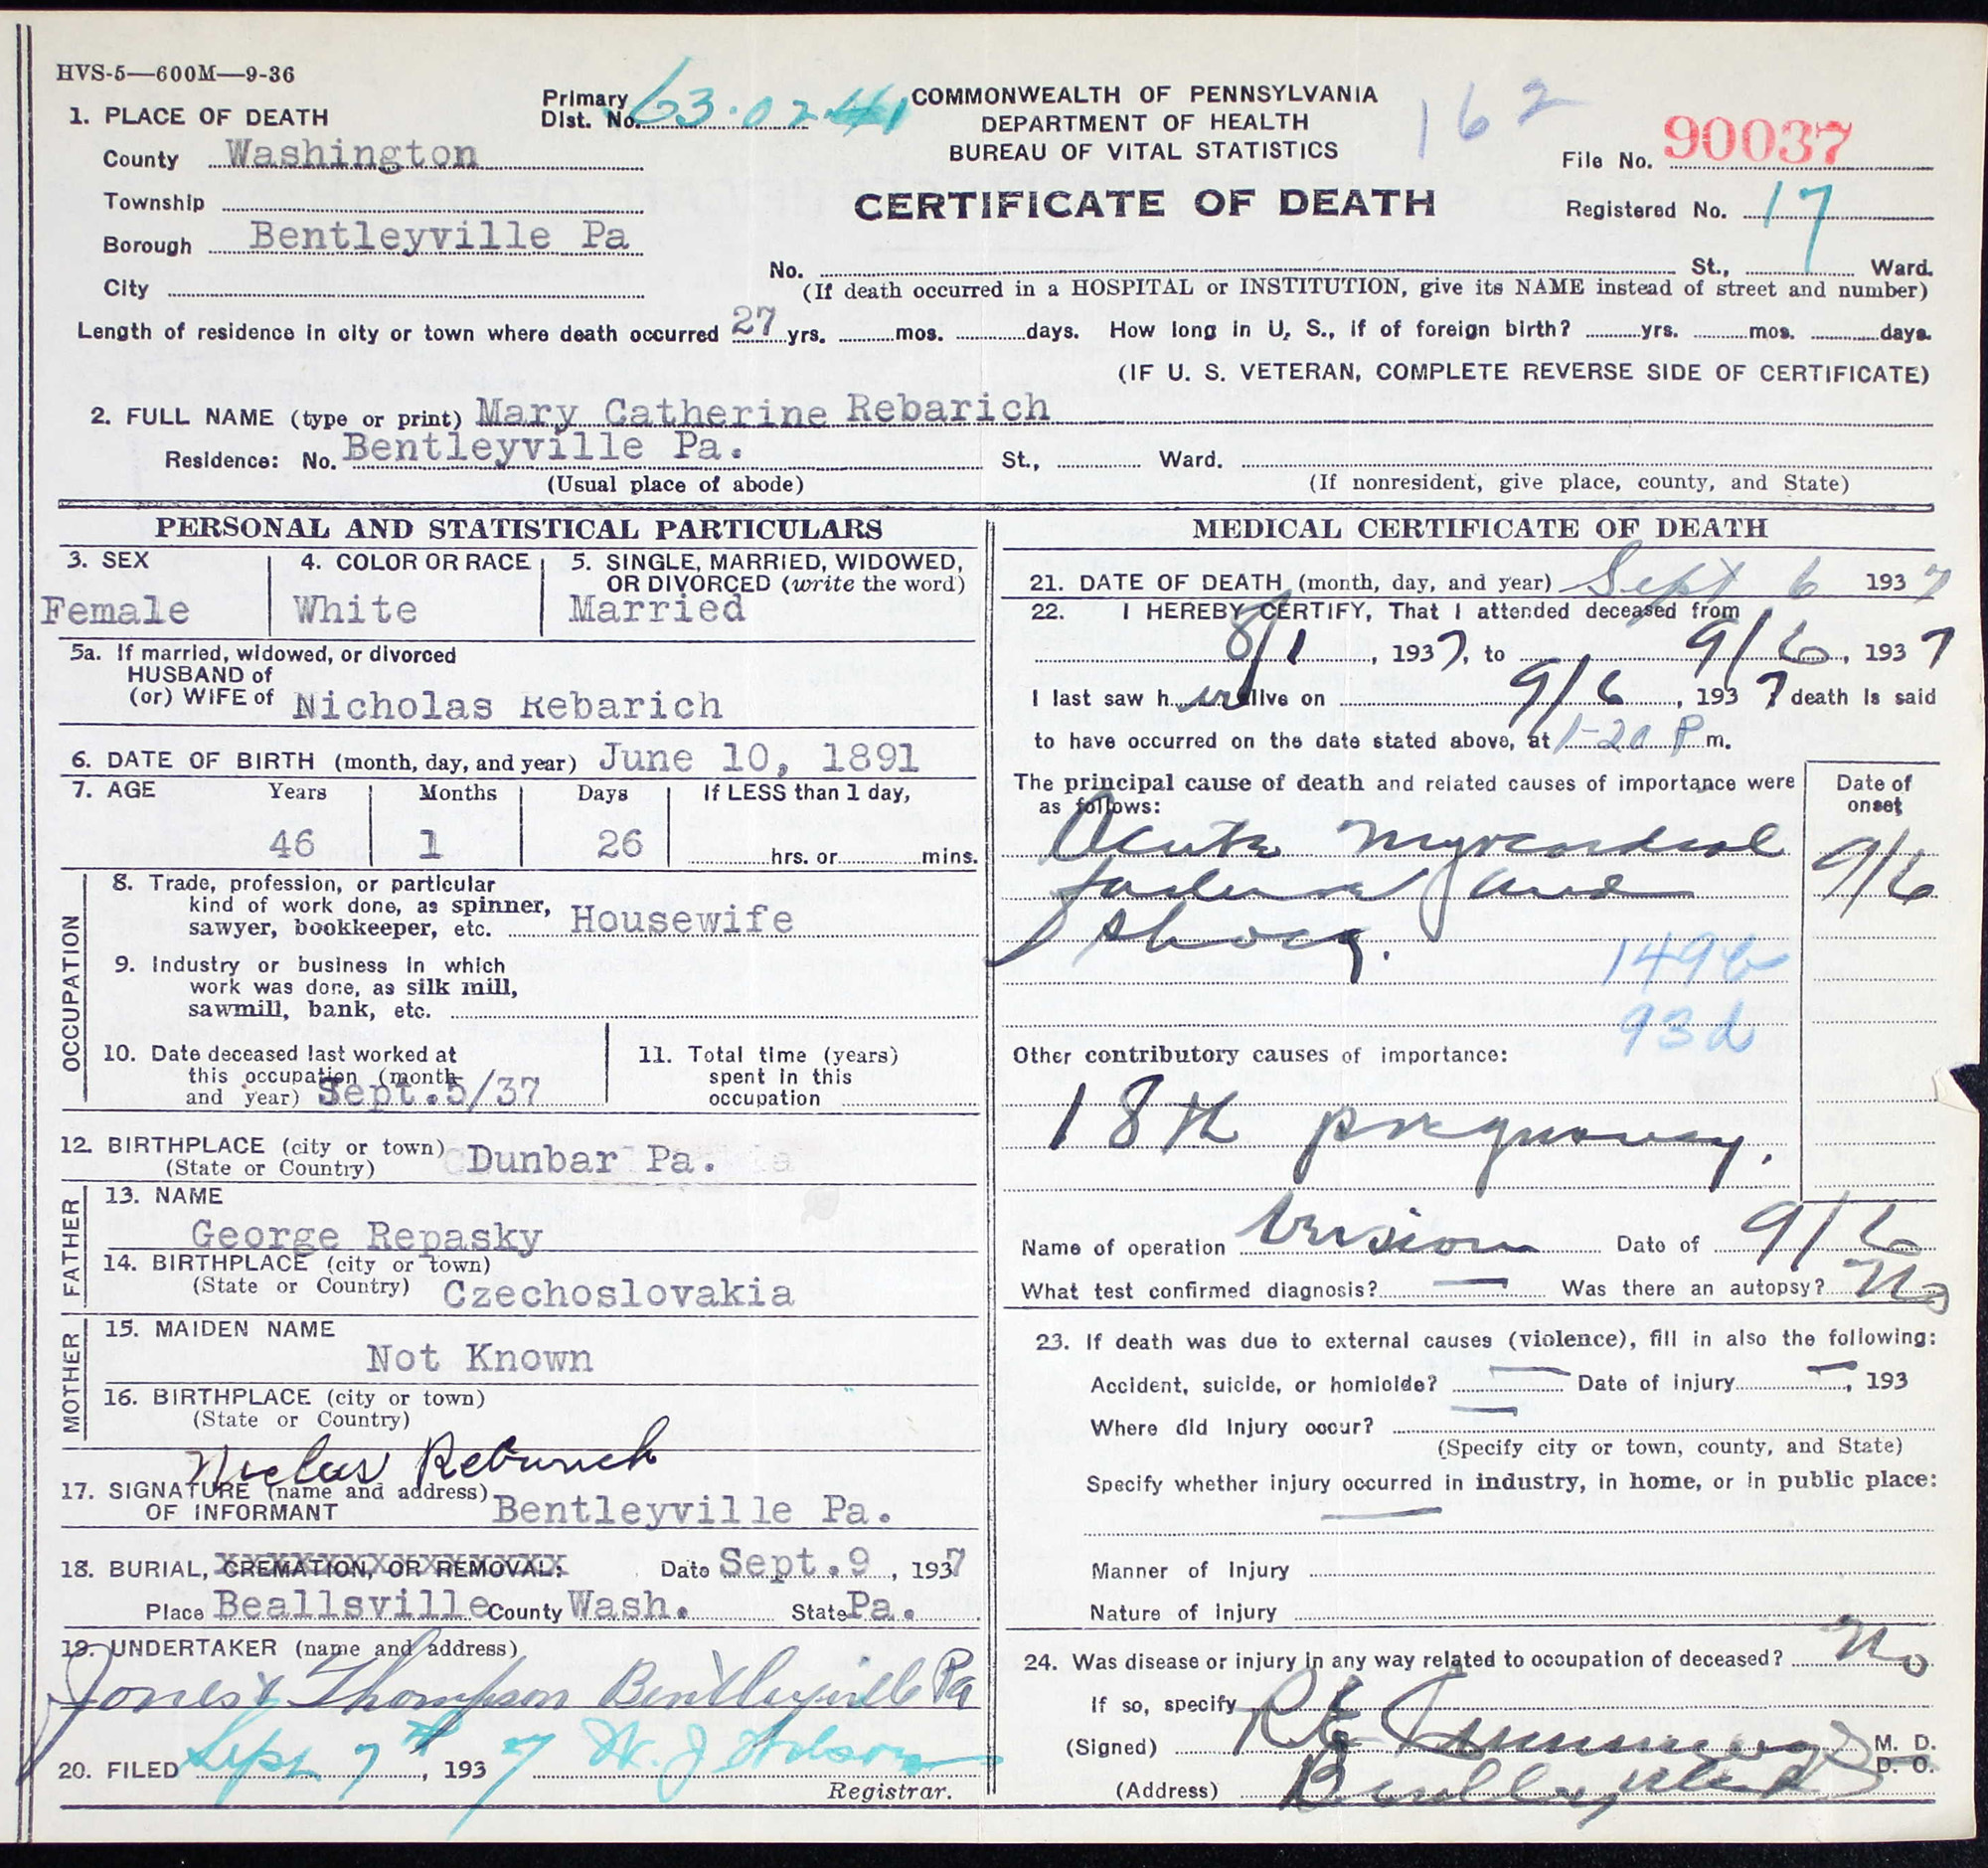 HVS-5—600M—9-36
1. PLACE OF DEATH
County Washington
Township
Borough Bentleyville Pa
City
Primary Dist. No. 63-02-41
COMMONWEALTH OF PENNSYLVANIA
DEPARTMENT OF HEALTH
BUREAU OF VITAL STATISTICS
CERTIFICATE OF DEATH
162
File No. 90037
Registered No. 17
No. St., Ward.
(If death occurred in a HOSPITAL or INSTITUTION, give its NAME instead of street and number)
Length of residence in city or town where death occurred 27 yrs. mos. days. How long in U. S., if of foreign birth? yrs. mos. days.
(IF U. S. VETERAN, COMPLETE REVERSE SIDE OF CERTIFICATE)
2. FULL NAME (type or print) Mary Catherine Rebarich
Residence: No. Bentleyville Pa. St., Ward.
(Usual place of abode) (If nonresident, give place, county, and State)
PERSONAL AND STATISTICAL PARTICULARS
3. SEX
Female
4. COLOR OR RACE
White
5. SINGLE, MARRIED, WIDOWED,
OR DIVORCED (write the word)
Married
5a. If married, widowed, or divorced
HUSBAND of
(or) WIFE of Nicholas Rebarich
6. DATE OF BIRTH (month, day, and year) June 10, 1891
7. AGE Years Months Days If LESS than 1 day,
46 1 26 hrs. or mins.
OCCUPATION
8. Trade, profession, or particular
kind of work done, as spinner,
sawyer, bookkeeper, etc. Housewife
9. Industry or business in which
work was done, as silk mill,
sawmill, bank, etc.
10. Date deceased last worked at
this occupation (month
and year) Sept.5/37
11. Total time (years)
spent in this
occupation
12. BIRTHPLACE (city or town)
(State or Country) Dunbar Pa.
FATHER
13. NAME
George Repasky
14. BIRTHPLACE (city or town)
(State or Country) Czechoslovakia
MOTHER
15. MAIDEN NAME
Not Known
16. BIRTHPLACE (city or town)
(State or Country)
17. SIGNATURE (name and address)
OF INFORMANT Bentleyville Pa.
18. BURIAL, CREMATION, OR REMOVAL: Date Sept.9, 1937
Place Beallsville County Wash. State Pa.
19. UNDERTAKER (name and address)
Jones & Thompson Bentleyville Pa
20. FILED Sept 7th, 1937
Registrar.
MEDICAL CERTIFICATE OF DEATH
21. DATE OF DEATH (month, day, and year) Sept 6 1937
22. I HEREBY CERTIFY, That I attended deceased from
8/1, 1937, to 9/6, 1937
I last saw her alive on 9/6, 1937 death is said
to have occurred on the date stated above, at 1-20 P m.
The principal cause of death and related causes of importance were
as follows:
Date of
onset
Acute myocardial 9/6
failure and
shock.
149b
93d
Other contributory causes of importance:
18th pregnancy.
Name of operation Version Date of 9/6
What test confirmed diagnosis? — Was there an autopsy? No
23. If death was due to external causes (violence), fill in also the following:
Accident, suicide, or homicide? — Date of injury —, 193
Where did injury occur? —
(Specify city or town, county, and State)
Specify whether injury occurred in industry, in home, or in public place:
—
Manner of injury
Nature of injury
24. Was disease or injury in any way related to occupation of deceased? No
If so, specify
(Signed) M. D.
D. O.
(Address) Bentleyville Pa